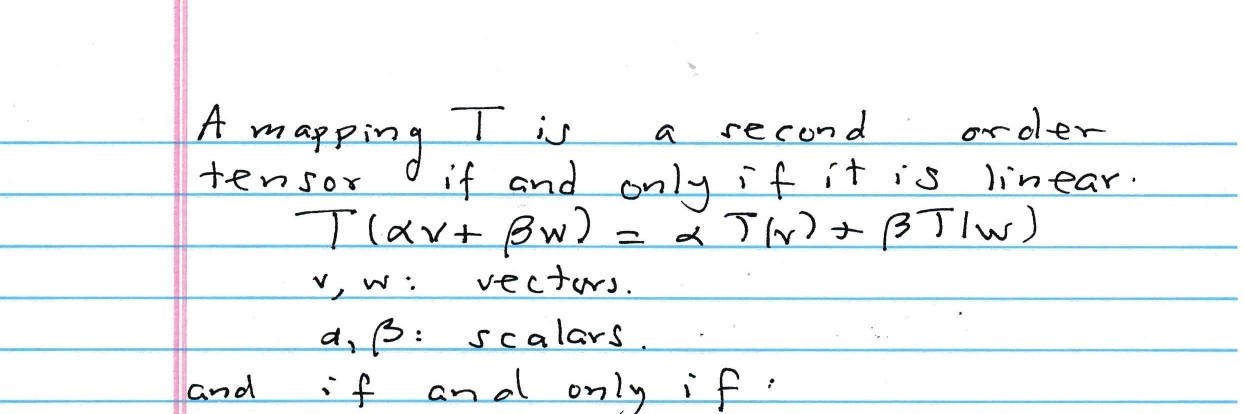 A mapping T is a second order
tensor if and only if it is linear.
T(αv + βw) = α T(v) + β T(w)
v, w: vectors.
α, β: scalars.
and if and only if: